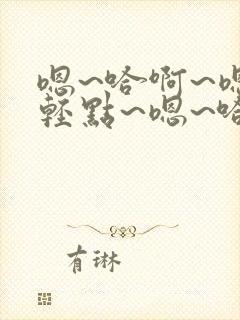 嗯~哈啊~嗯
輕點~嗯~哈
有琳